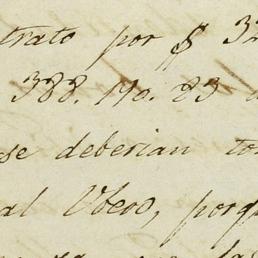 trato por $ 32
388. No. 23
se deberian to
al Ubeos, porq